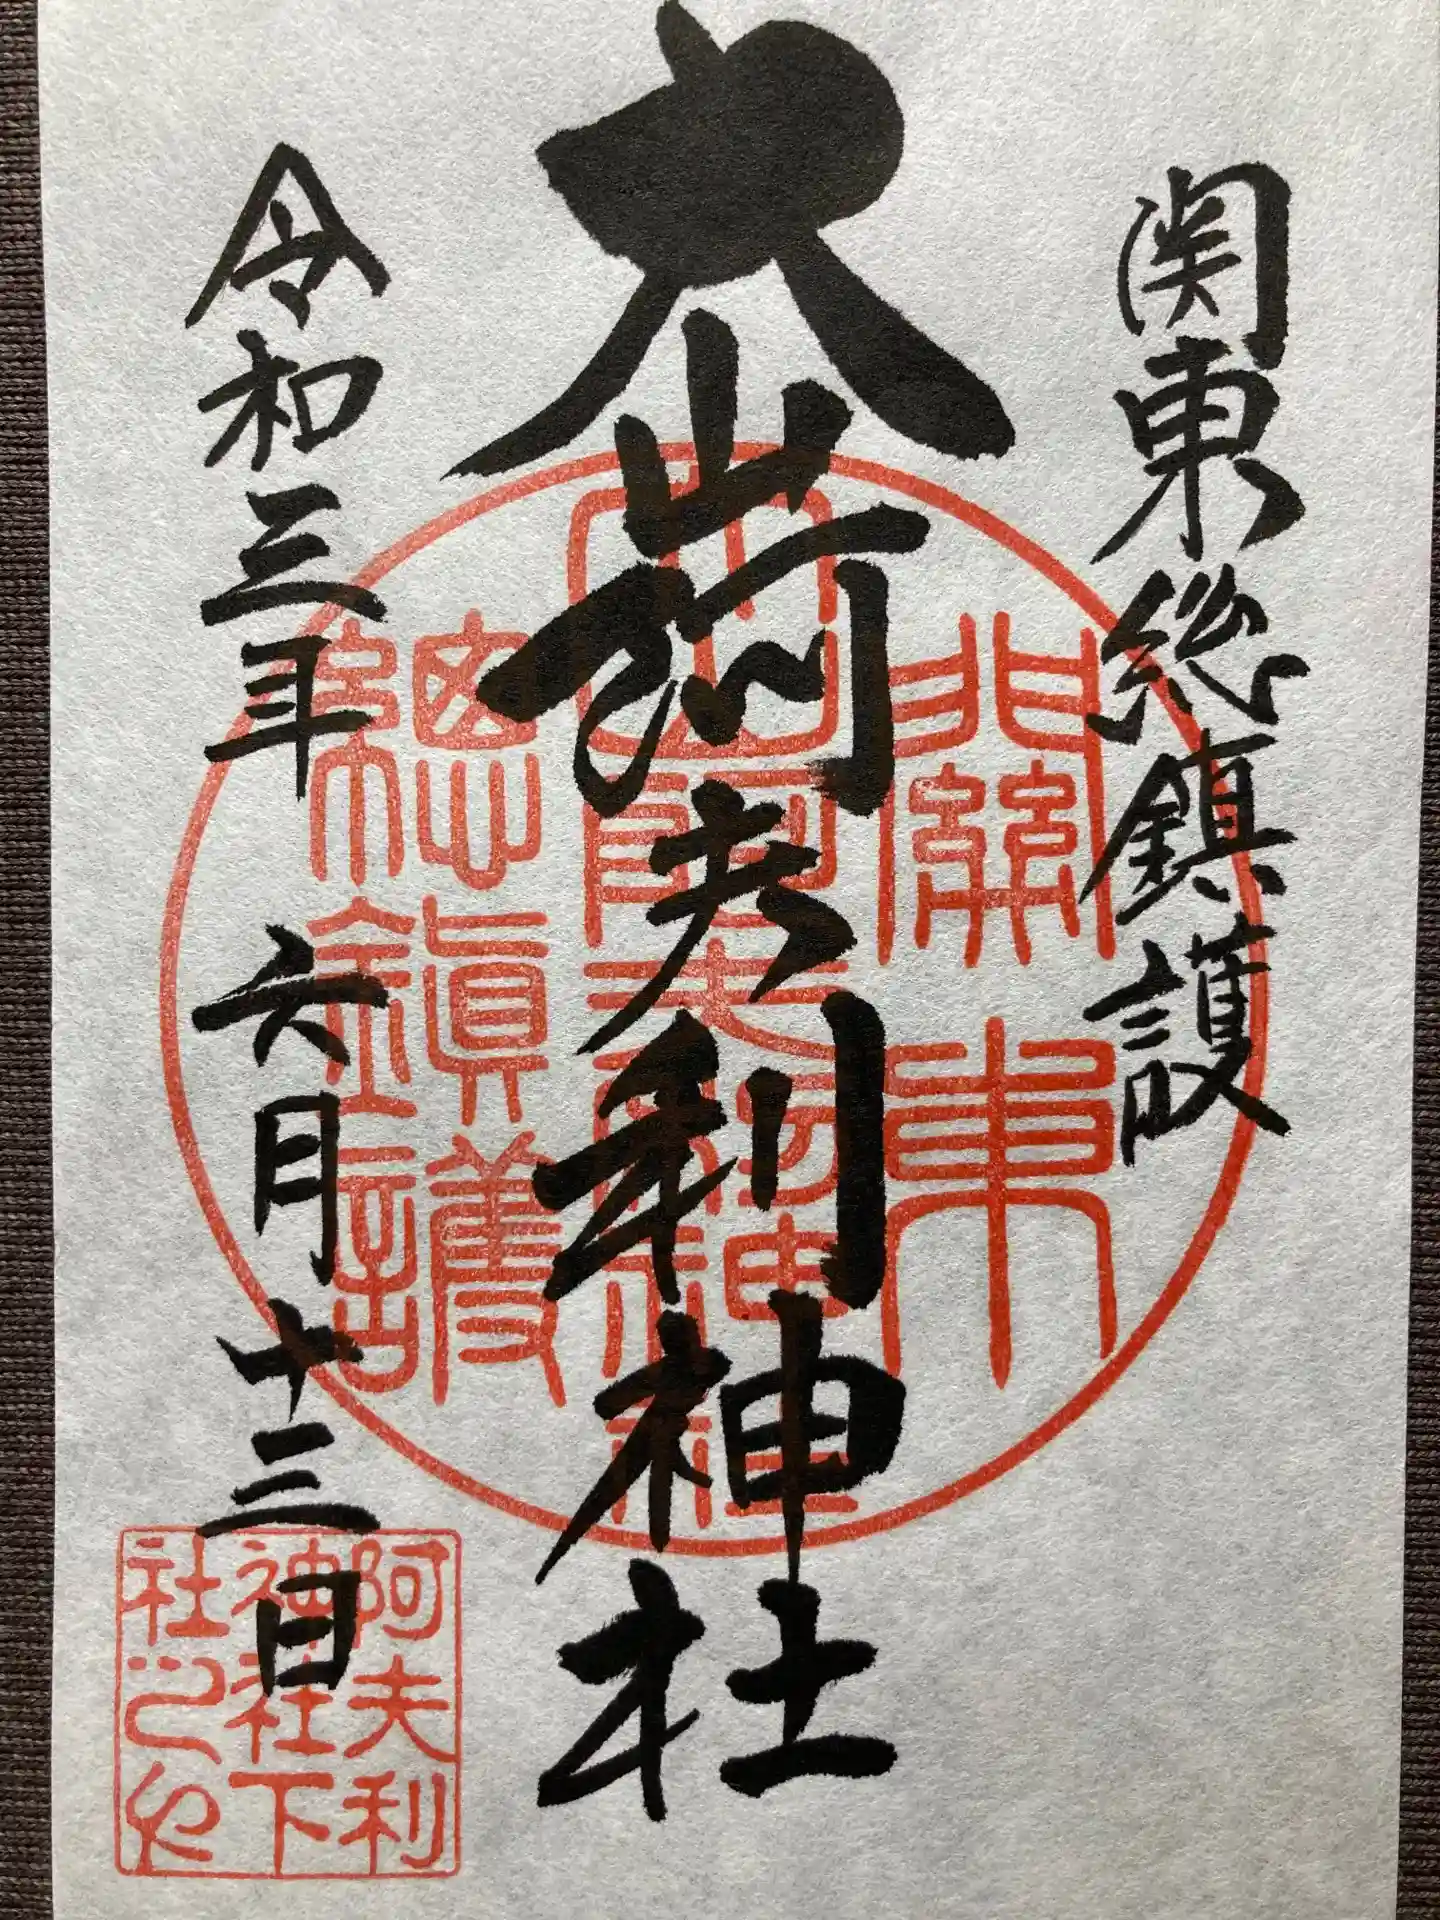 関東総鎮護
大山阿夫利神社
令和三年 六月十三日
關東
大山阿夫利神社
總鎮護
阿夫利
神社下
社之也